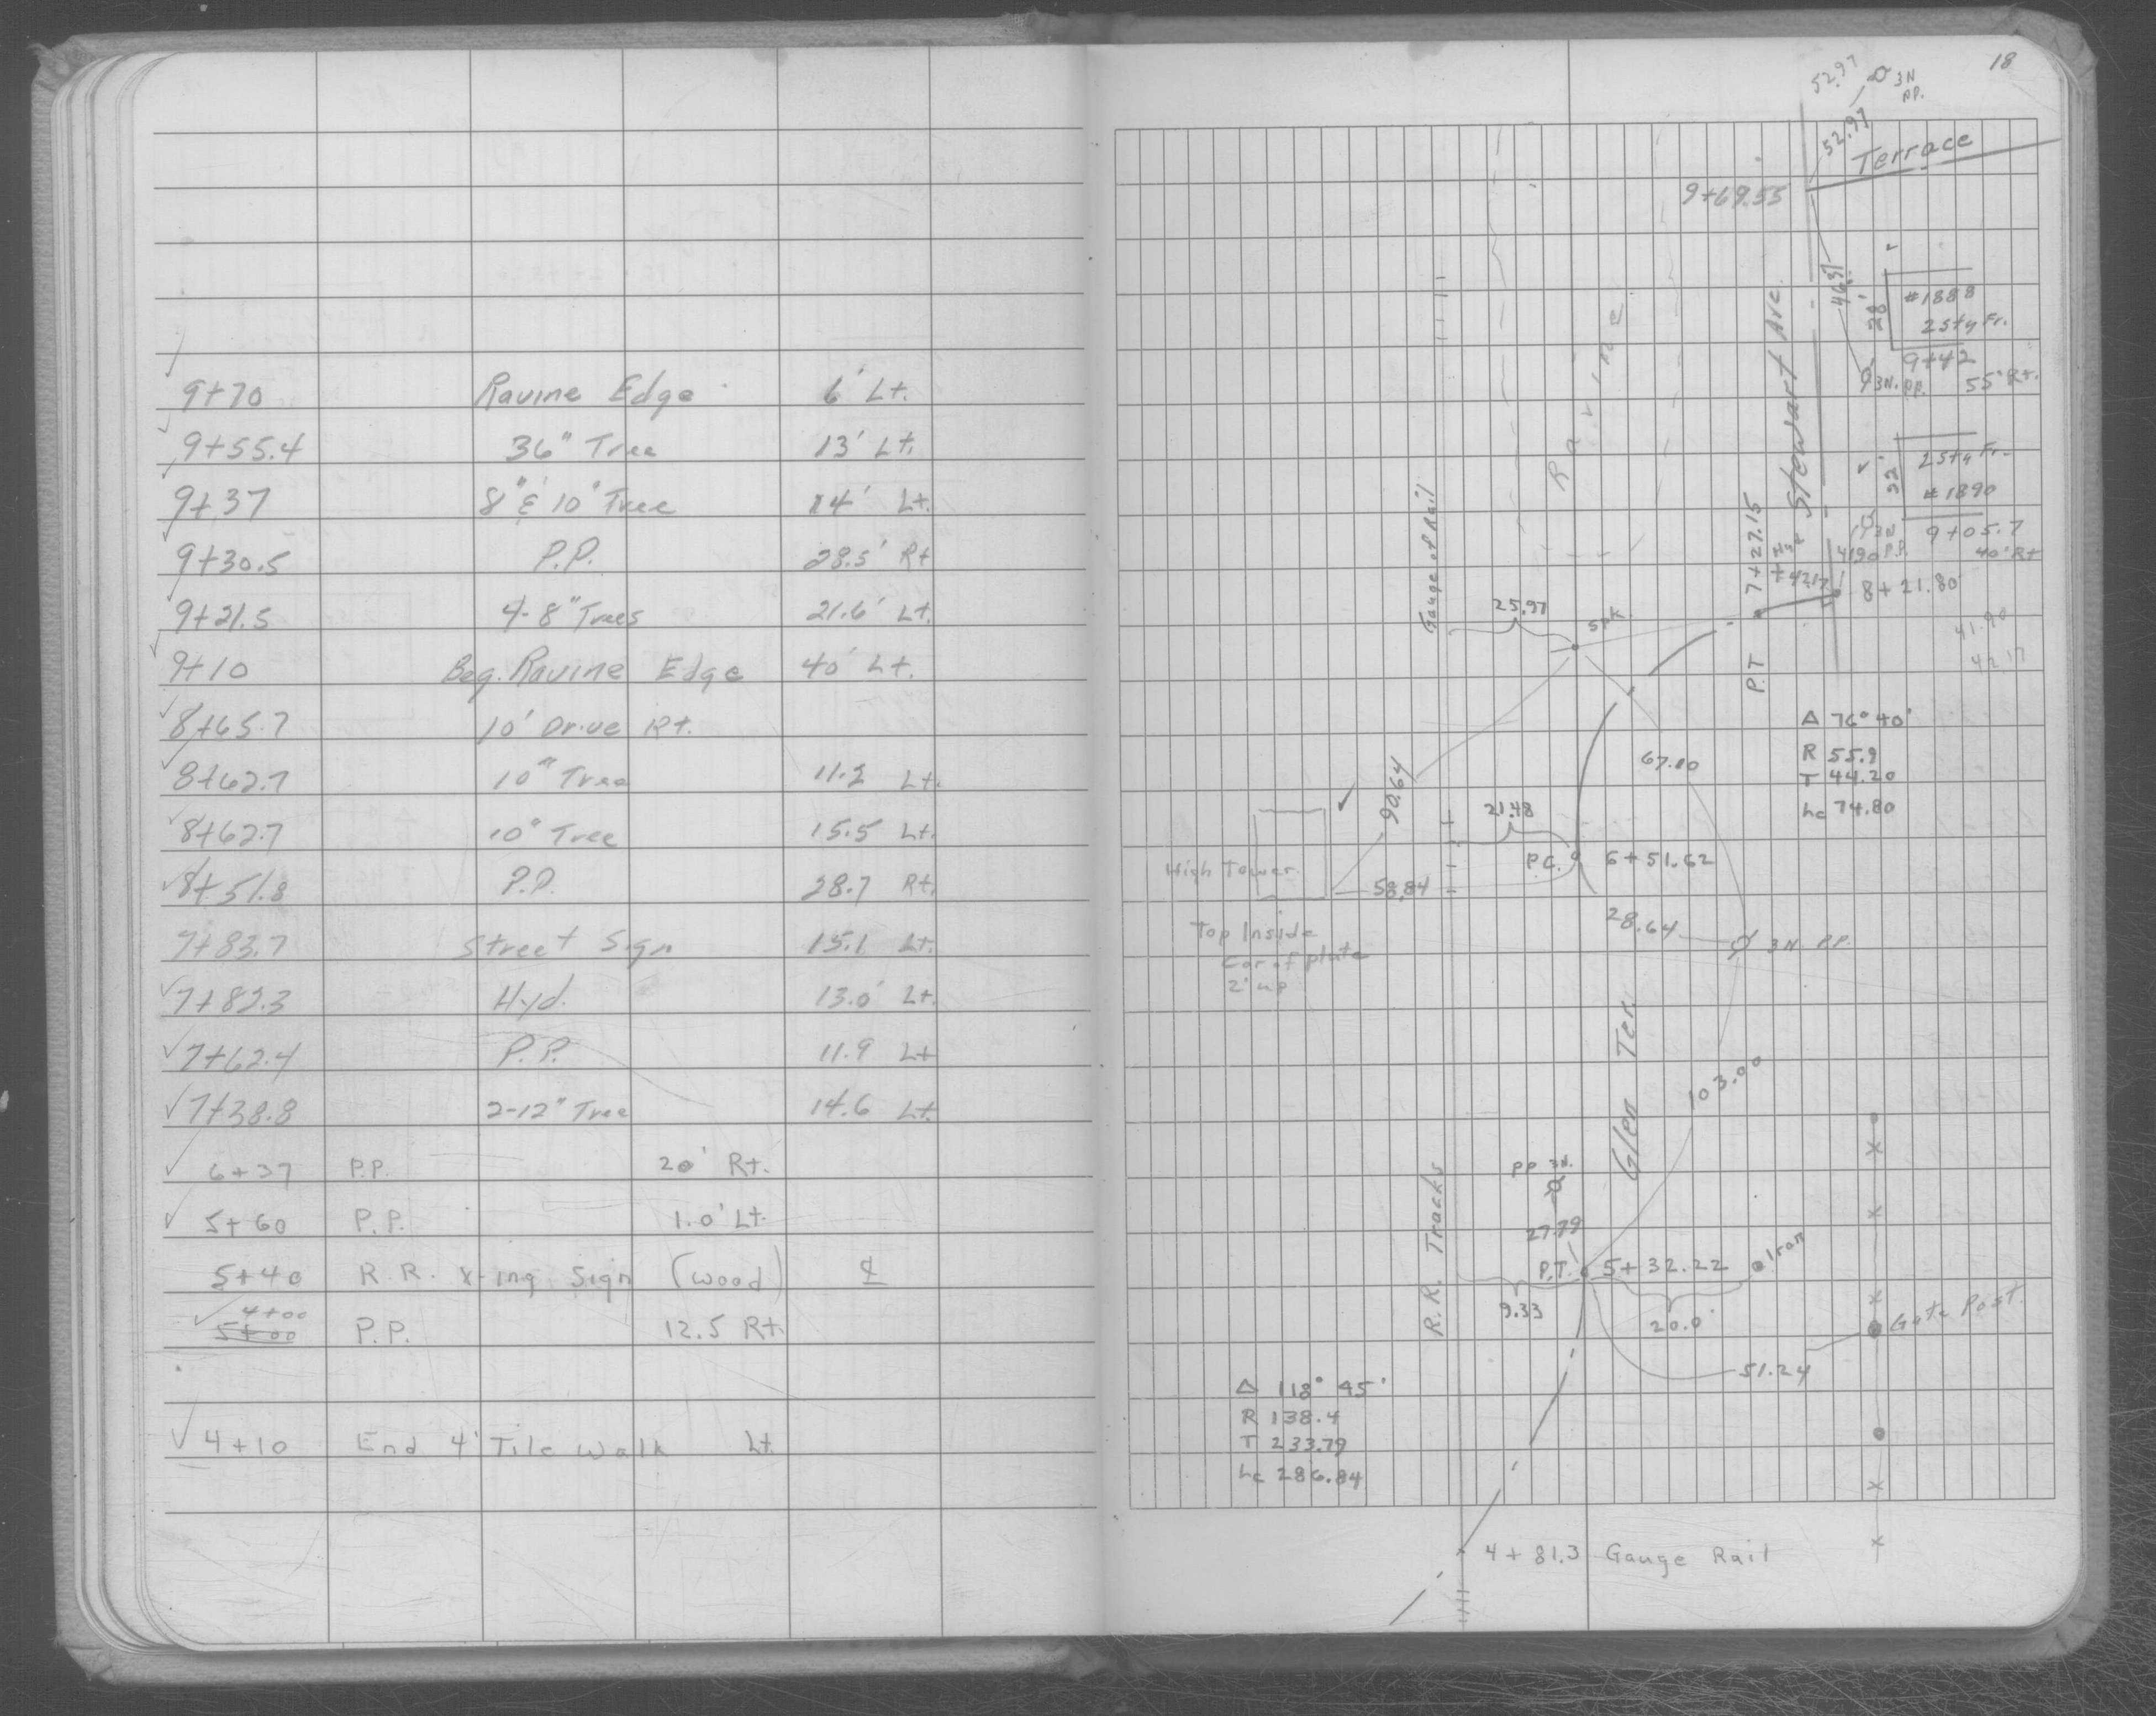 9+70 Ravine Edge 6' Lt.
9+55.4 36" Tree 13' Lt.
9+37 8" & 10" Tree 14' Lt.
9+30.5 P.P. 28.5' Rt
9+21.5 4-8" Trees 21.6' Lt.
9+10 Beg. Ravine Edge 40' Lt.
8+65.7 10' Drive Rt.
8+62.7 10" Tree 11.2 Lt.
8+62.7 10" Tree 15.5 Lt.
8+51.8 P.P. 28.7 Rt.
7+83.7 Street Sign 15.1 Lt.
7+82.3 Hyd. 13.0' Lt.
7+62.4 P.P. 11.9 Lt
7+38.8 2-12" Tree 14.6 Lt.
6+37 P.P. 20' Rt.
5+60 P.P. 1.0' Lt.
5+40 R.R. X-ing Sign (Wood) ℄
4+00
5+00 P.P. 12.5 Rt.
4+10 End 4' Tile Walk Lt.
18
52.97
3N
P.P.
52.97
Terrace
9+69.55
46.37
28'
#1888
2 Sty Fr.
9+42
55' Rt.
3N. P.P.
Stewart Ave.
Ravine
22'
2 Sty Fr.
#1890
9+05.7
40' Rt
3N
P.P.
41.90
42.17
8+21.80
41.90
42.17
P.T. 7+27.15
Gauge of Rail
25.97
spk.
Δ 76° 40'
R 55.9
T 44.20
Lc 74.80
67.10
90.64
21.48
P.C. 6+51.62
High Tower
58.84
28.64
3N P.P.
Top Inside
Cor of plate
2' up
Glen Ter.
103.00
R.R. Tracks
PP 3N.
27.79
P.T. 5+32.22
Iron
9.33
20.0
Gate Post.
51.24
Δ 118° 45'
R 138.4
T 233.79
Lc 286.84
4+81.3 Gauge Rail